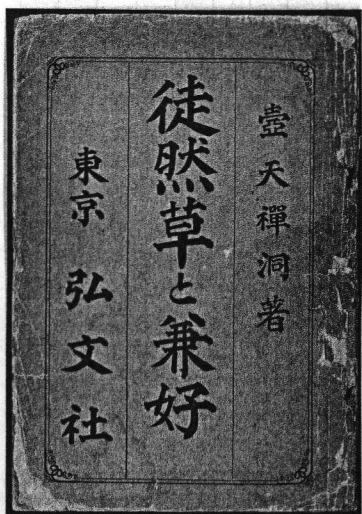 壺天禪洞著
徒然草と兼好
東京 弘文社